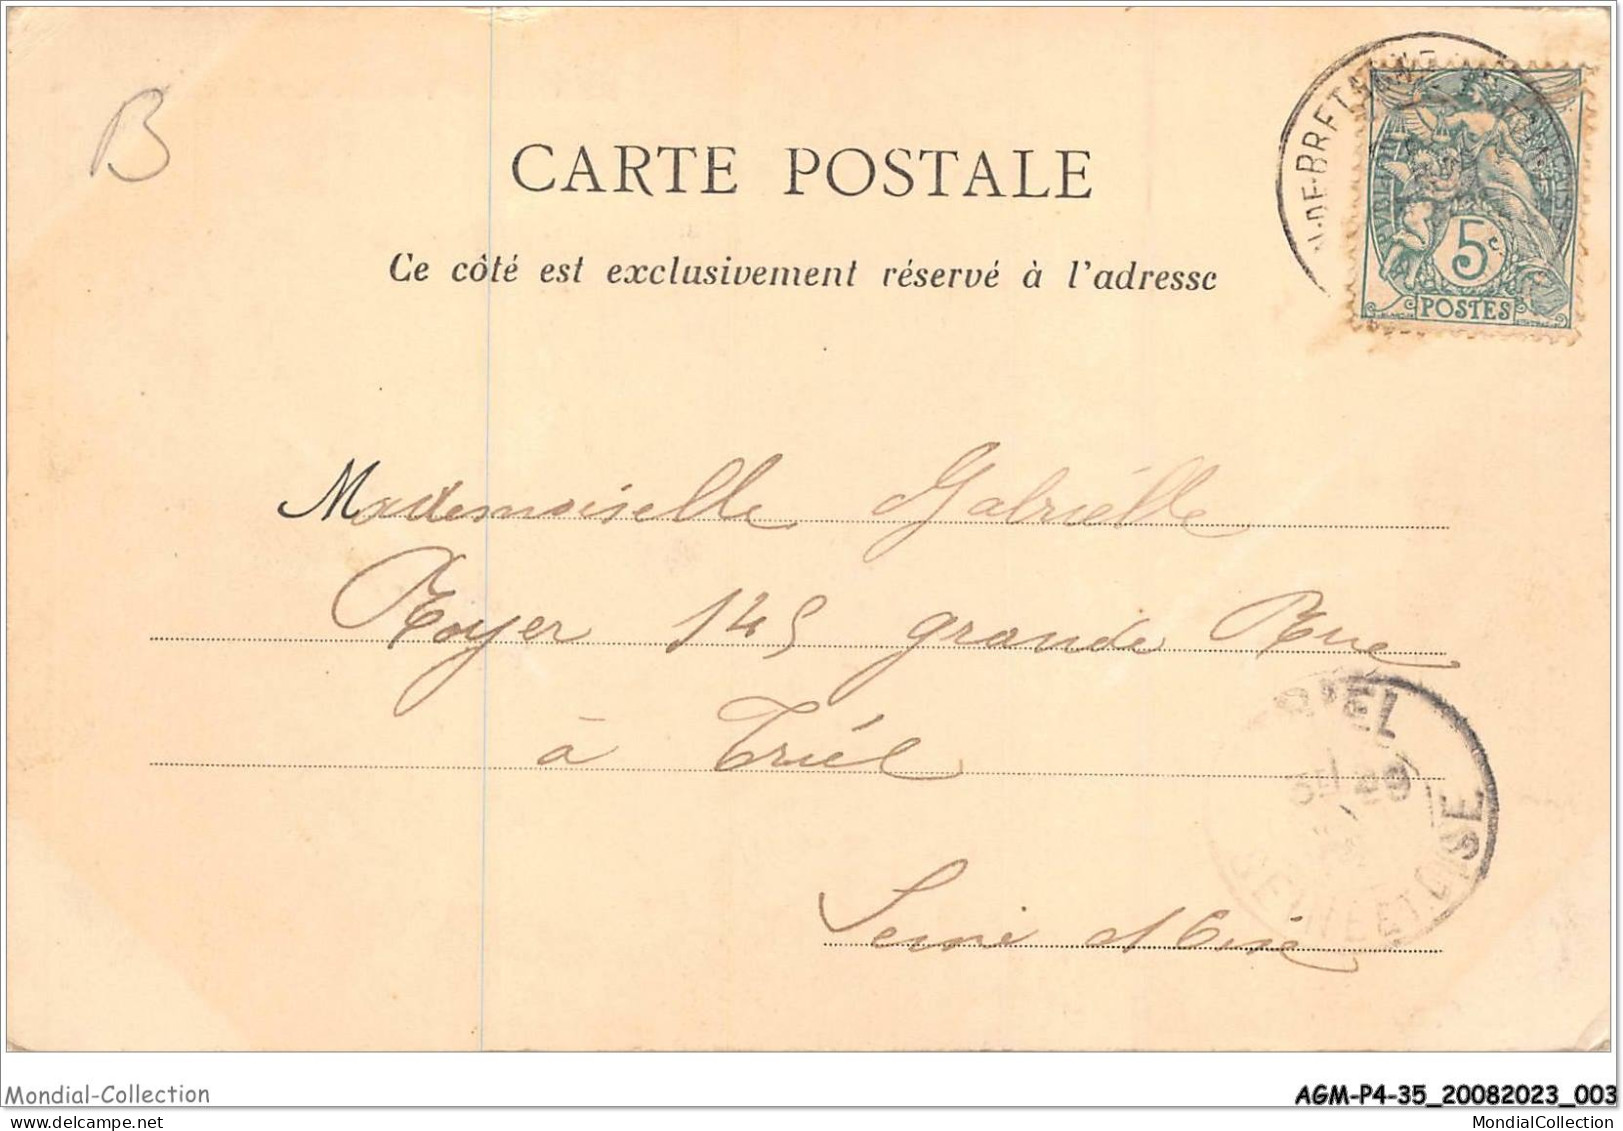 B
CARTE POSTALE
Ce côté est exclusivement réservé à l'adresse
DE-BRETAGNE
5c
POSTES
Mademoiselle Gabriélle
Royer 145 grande Rue
à Triél
TRIEL
SEINE ET OISE
Seine et Oise
Mondial-Collection
AGM-P4-35_20082023_003
MondialCollection